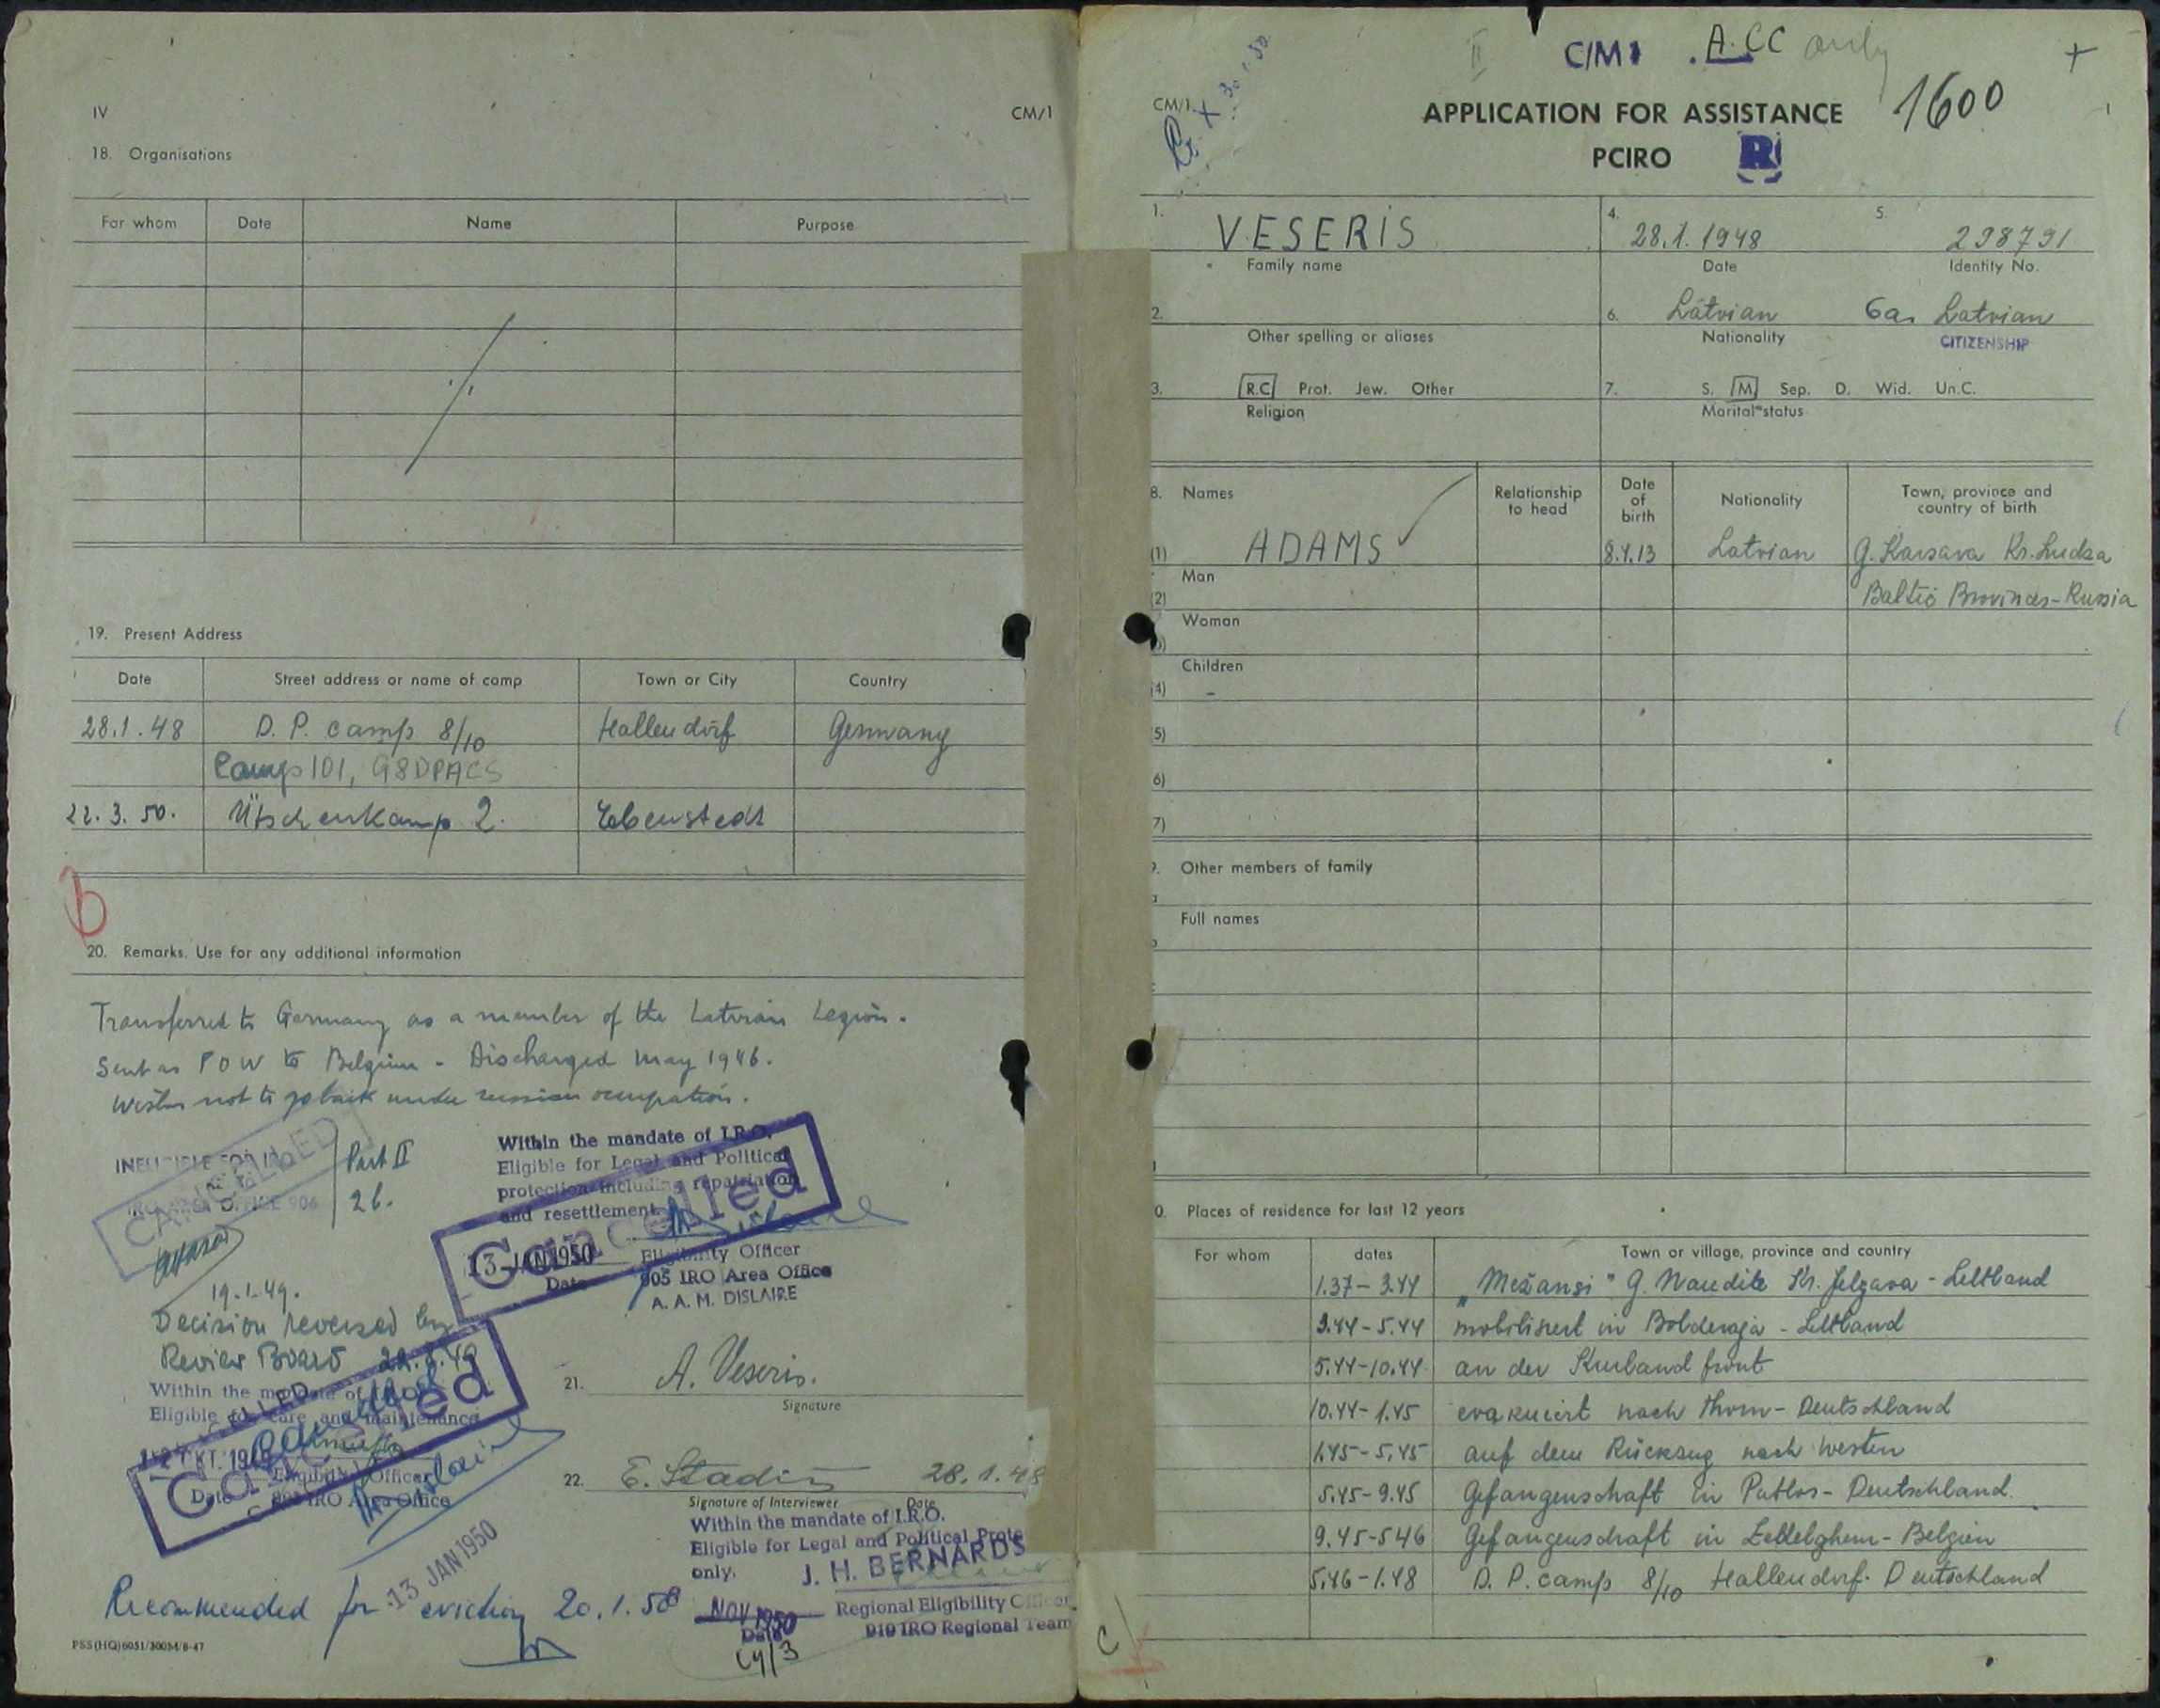 IV
CM/1
18. Organisations
For whom Date Name Purpose
19. Present Address
Date Street address or name of camp Town or City Country
28.1.48 D. P. camp 8/10 Hallendorf Germany
Camp 101, G8DPACS
22.3.50. Ütschenkamp 2. Ebenstedt
20. Remarks. Use for any additional information
Transferred to Germany as a member of the Latvian Legion.
Sent as POW to Belgium - Discharged May 1946.
Wishes not to go back under russian occupation.
INELIGIBLE FOR
IRO AREA OFFICE 906
CANCELLED
Part II
26.
19.1.49.
Decision reversed by
Review Board
Within the mandate of
Eligible for care and maintenance
Eligibility Officer
Date IRO Area Office
Cancelled
13 JAN 1950
Within the mandate of I.R.O.
Eligible for Legal and Political
protection including repatriation
and resettlement.
13 JAN 1950 Eligibility Officer
Date 905 IRO Area Office
A. A. M. DISLAIRE
Cancelled
21. A. Veseris.
Signature
22. E. 28.1.48
Signature of Interviewer Date
Within the mandate of I.R.O.
Eligible for Legal and Political Prote
only.
J. H. BERNARDS
NOV 1950 Regional Eligibility Officer
Date 919 IRO Regional Team
Recommended for eviction 20.1.50
PSS(HQ)6051/300M/8-47
II C/M1 A.CC only +
CM/1.
APPLICATION FOR ASSISTANCE 1600
PCIRO R
1. VESERIS 4. 28.1.1948 5. 298791
Family name Date Identity No.
2. 6. Latvian 6a. Latvian
Other spelling or aliases Nationality CITIZENSHIP
3. R.C Prot. Jew. Other 7. S. M Sep. D. Wid. Un.C.
Religion Marital status
8. Names Relationship to head Date of birth Nationality Town, province and country of birth
(1) ADAMS 8.4.13 Latvian G. Karsava Kr. Ludza
Man
(2) Baltic Provinces-Russia
Woman
Children
(4) -
5)
6)
7)
Other members of family
Full names
0. Places of residence for last 12 years
For whom dates Town or village, province and country
1.37-3.44 „Mežansi" G. Naudite Kr. Jelgava - Lettland
3.44-5.44 mobilisiert in Bolderaja - Lettland
5.44-10.44 an der Kurland front
10.44-1.45 evakuiert nach Thorn - Deutschland
1.45-5.45 auf dem Rückzug nach Westen
5.45-9.45 Gefangenschaft in Putlos - Deutschland.
9.45-5.46 Gefangenschaft in Zedelghem - Belgien
5.46-1.48 D. P. camp 8/10 Hallendorf - Deutschland
C